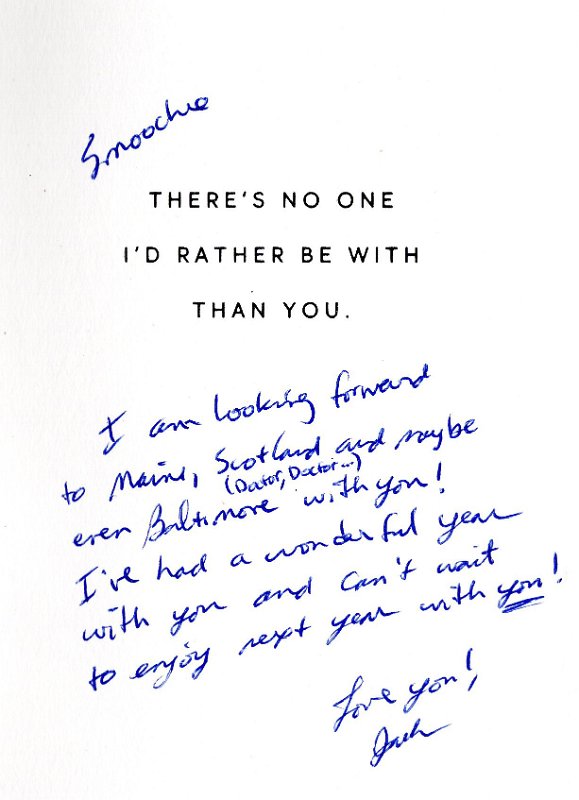 Smoochie
THERE'S NO ONE
I'D RATHER BE WITH
THAN YOU.
I am looking forward
to Maine, Scotland and maybe
(Doctor, Doctor...)
even Baltimore with you!
I've had a wonderful year
with you and can't wait
to enjoy next year with you!
Love you!
Jack